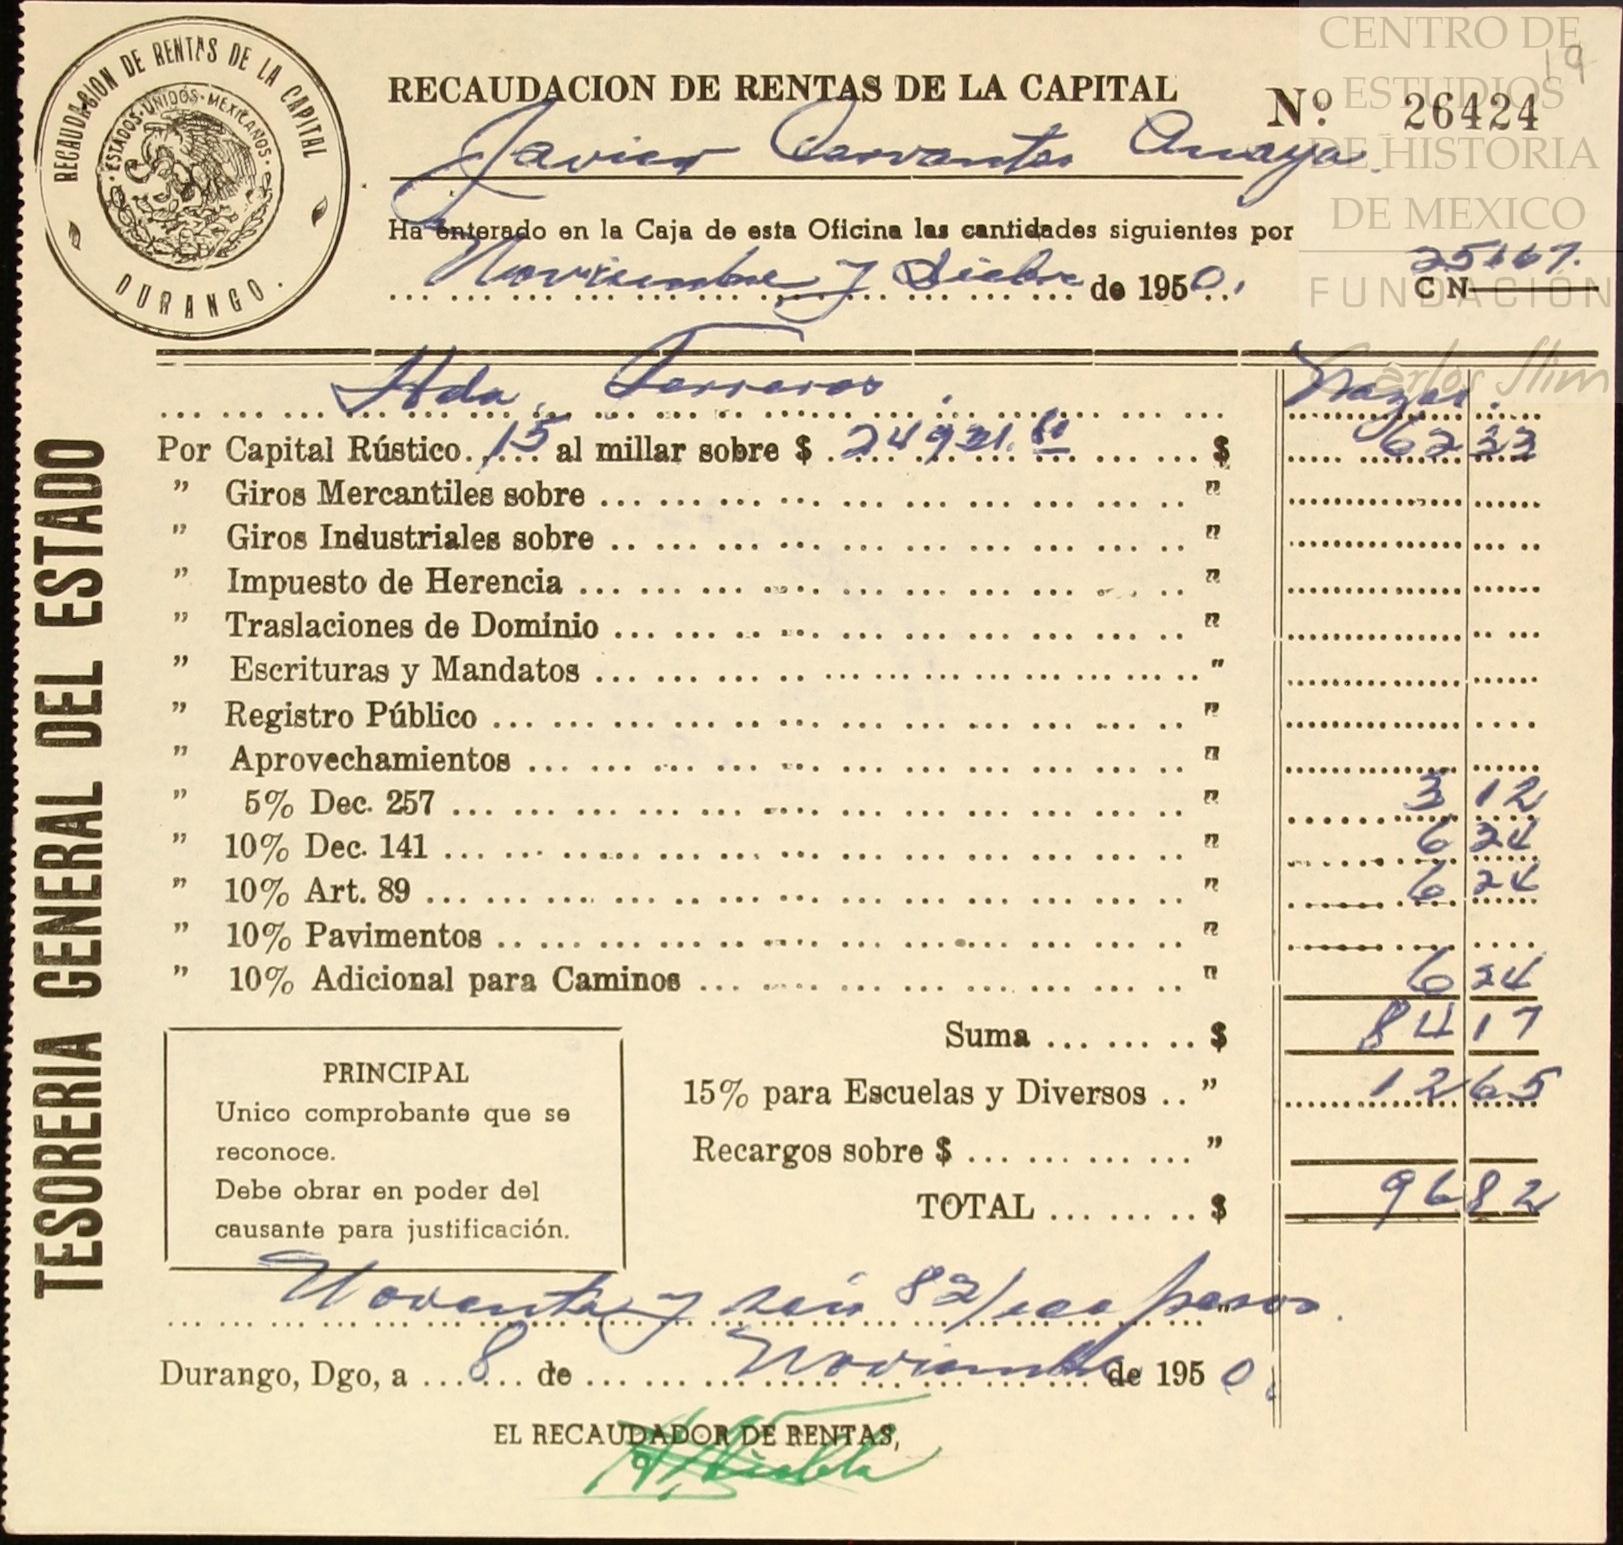 CENTRO DE
ESTUDIOS
DE HISTORIA
DE MEXICO
FUNDACIÓN
Carlos Slim
19
RECAUDACION DE RENTAS DE LA CAPITAL
DURANGO.
ESTADOS UNIDOS MEXICANOS
RECAUDACION DE RENTAS DE LA CAPITAL
Nº 26424
Javier Cervantes Anaya.
Ha enterado en la Caja de esta Oficina las cantidades siguientes por
Noviembre y Dicbre de 1950.
25167.
C N
Hda. Torreros.
Por Capital Rústico 15 al millar sobre $ 24921. $ 62 33
" Giros Mercantiles sobre "
" Giros Industriales sobre "
" Impuesto de Herencia "
" Traslaciones de Dominio "
" Escrituras y Mandatos "
" Registro Público "
" Aprovechamientos "
" 5% Dec. 257 " 3 12
" 10% Dec. 141 " 6 24
" 10% Art. 89 " 6 24
" 10% Pavimentos "
" 10% Adicional para Caminos " 6 24
Suma $ 84 17
15% para Escuelas y Diversos " 12 65
Recargos sobre $ "
TOTAL $ 96 82
PRINCIPAL
Unico comprobante que se
reconoce.
Debe obrar en poder del
causante para justificación.
Noventa y seis 82/100 pesos.
Durango, Dgo, a 8 de Noviembre de 1950.
EL RECAUDADOR DE RENTAS,
TESORERIA GENERAL DEL ESTADO